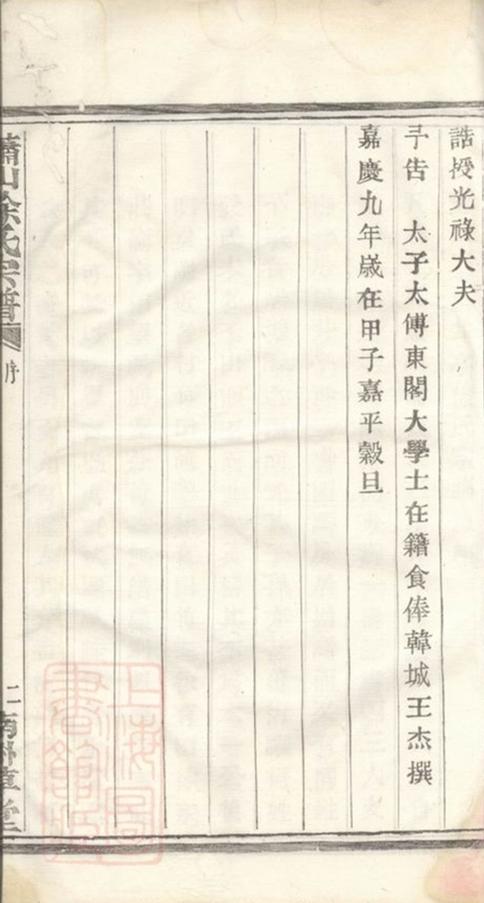 誥授光祿大夫
予告　太子太傅東閣大學士在籍食俸韓城王杰撰
嘉慶九年歲在甲子嘉平穀旦
蕭山徐氏宗譜
序
二
上海圖
書館藏